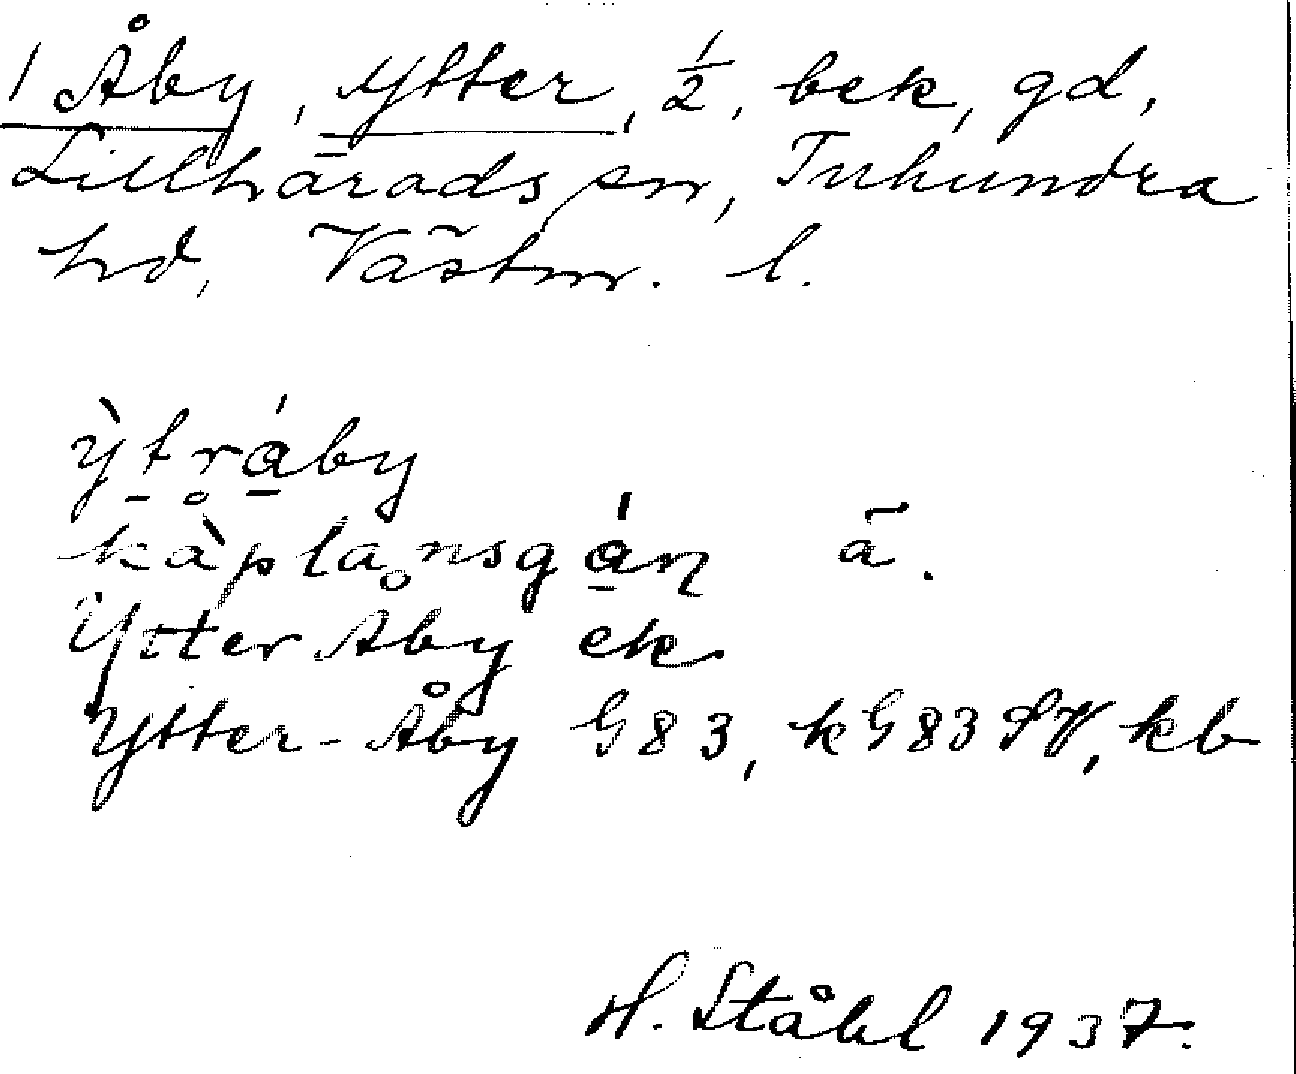 1 Åby, Ytter, ½, bek, gd,
Lillhärads sn, Tuhundra
hd, Västm. l.
ỳtráby
kàplansgán ä.
Ytter Åby ek
Ytter-Åby G83, kG83 SV, kb
H. Ståhl 1937.